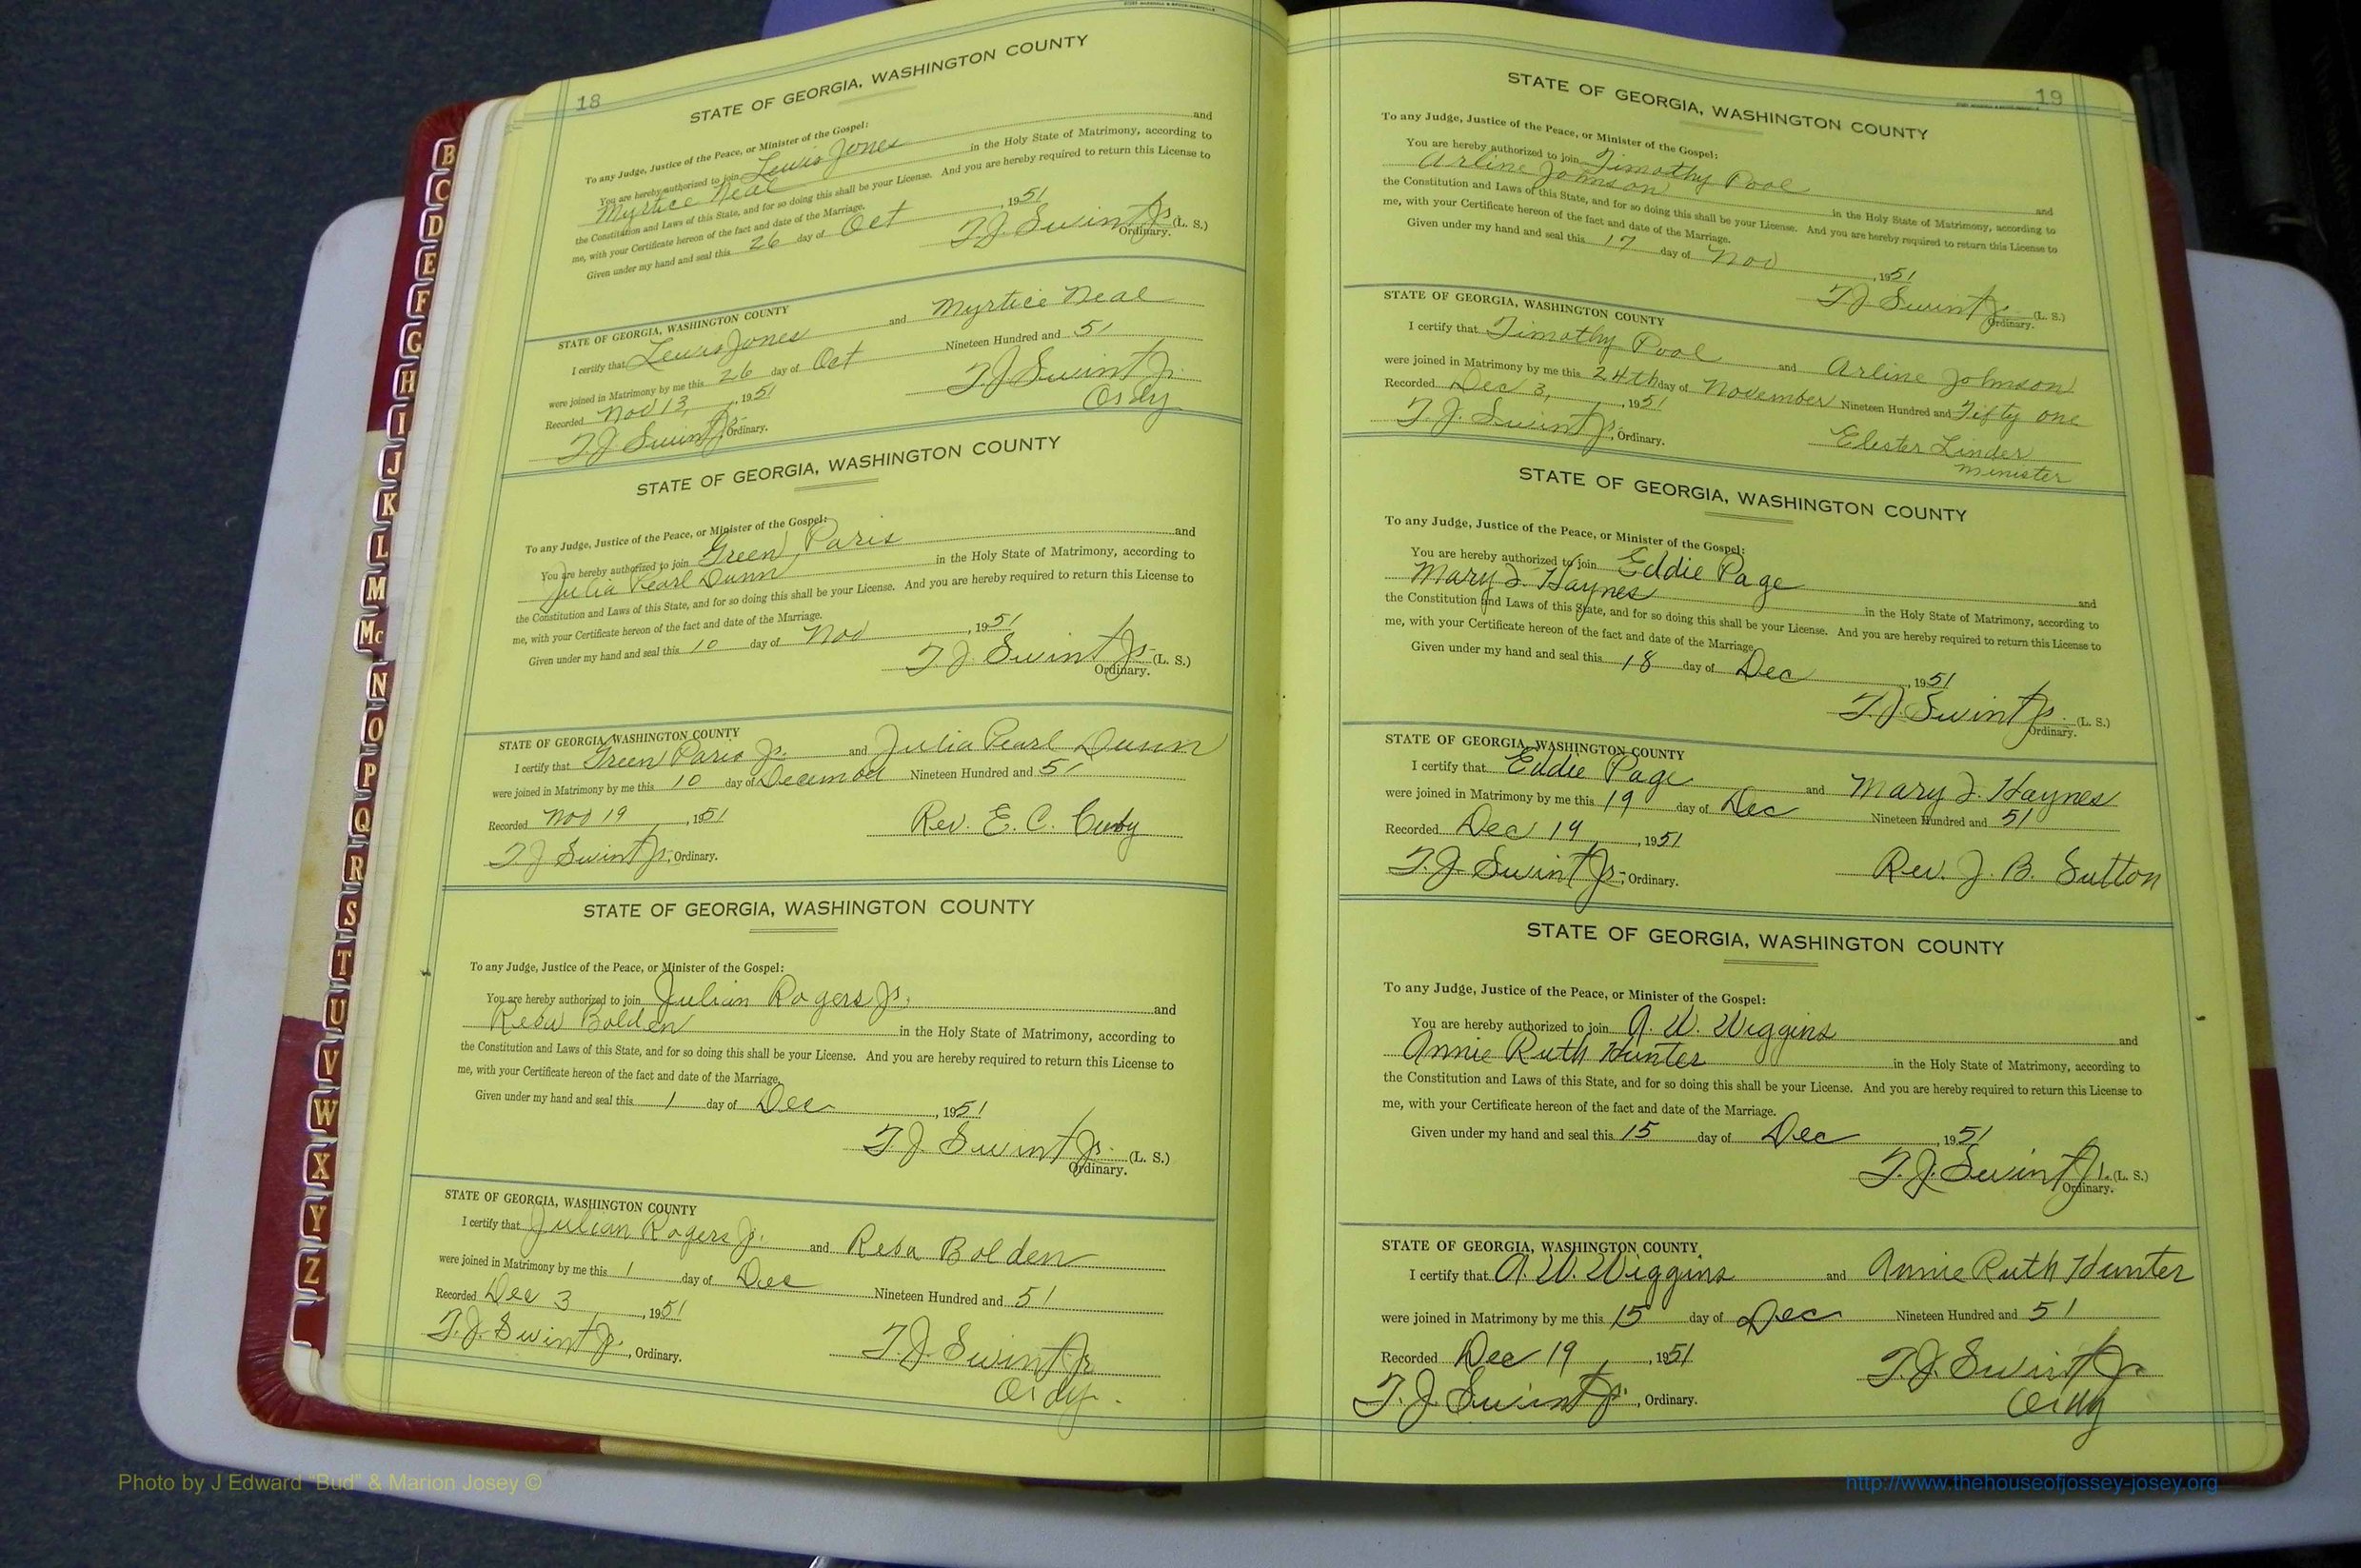 18
STATE OF GEORGIA, WASHINGTON COUNTY
To any Judge, Justice of the Peace, or Minister of the Gospel:
You are hereby authorized to join Lewis Jones and
Myrtice Neal in the Holy State of Matrimony, according to
the Constitution and Laws of this State, and for so doing this shall be your License. And you are hereby required to return this License to
me, with your Certificate hereon of the fact and date of the Marriage.
Given under my hand and seal this 26 day of Oct, 1951
T. J. Swint Jr. (L. S.)
Ordinary.
STATE OF GEORGIA, WASHINGTON COUNTY
I certify that Lewis Jones and Myrtice Neal
were joined in Matrimony by me this 26 day of Oct Nineteen Hundred and 51
Recorded Nov 13, 1951 T J Swint Jr.
T J Swint Jr. Ordinary. Ordy
STATE OF GEORGIA, WASHINGTON COUNTY
To any Judge, Justice of the Peace, or Minister of the Gospel:
You are hereby authorized to join Green Paris and
Julia Pearl Dunn in the Holy State of Matrimony, according to
the Constitution and Laws of this State, and for so doing this shall be your License. And you are hereby required to return this License to
me, with your Certificate hereon of the fact and date of the Marriage.
Given under my hand and seal this 10 day of Nov, 1951
T J. Swint Jr. (L. S.)
Ordinary.
STATE OF GEORGIA, WASHINGTON COUNTY
I certify that Green Paris Jr. and Julia Pearl Dunn
were joined in Matrimony by me this 10 day of Nineteen Hundred and 51
Recorded Nov 19, 1951 Rev. E. C.
T J Swint Jr. Ordinary.
STATE OF GEORGIA, WASHINGTON COUNTY
To any Judge, Justice of the Peace, or Minister of the Gospel:
You are hereby authorized to join Julian Rogers Jr. and
Reba Bolden in the Holy State of Matrimony, according to
the Constitution and Laws of this State, and for so doing this shall be your License. And you are hereby required to return this License to
me, with your Certificate hereon of the fact and date of the Marriage.
Given under my hand and seal this 1 day of Dec, 1951
T. J. Swint Jr. (L. S.)
Ordinary.
STATE OF GEORGIA, WASHINGTON COUNTY
I certify that Julian Rogers Jr. and Reba Bolden
were joined in Matrimony by me this 1 day of Dec Nineteen Hundred and 51
Recorded Dec 3, 1951
T. J. Swint Jr., Ordinary. T. J Swint Jr
Ordy.
19
STATE OF GEORGIA, WASHINGTON COUNTY
To any Judge, Justice of the Peace, or Minister of the Gospel:
You are hereby authorized to join Timothy Pool and
Arline Johnson in the Holy State of Matrimony, according to
the Constitution and Laws of this State, and for so doing this shall be your License. And you are hereby required to return this License to
me, with your Certificate hereon of the fact and date of the Marriage.
Given under my hand and seal this 17 day of Nov, 1951
T J Swint Jr. (L. S.)
Ordinary.
STATE OF GEORGIA, WASHINGTON COUNTY
I certify that Timothy Pool and Arline Johnson
were joined in Matrimony by me this 24th day of November Nineteen Hundred and Fifty one
Recorded Dec 3, 1951
T. J. Swint Jr., Ordinary. Elester Linder
minister
STATE OF GEORGIA, WASHINGTON COUNTY
To any Judge, Justice of the Peace, or Minister of the Gospel:
You are hereby authorized to join Eddie Page and
Mary Haynes in the Holy State of Matrimony, according to
the Constitution and Laws of this State, and for so doing this shall be your License. And you are hereby required to return this License to
me, with your Certificate hereon of the fact and date of the Marriage.
Given under my hand and seal this 18 day of Dec, 1951
T. J. Swint Jr. (L. S.)
Ordinary.
STATE OF GEORGIA, WASHINGTON COUNTY
I certify that Eddie Page and Mary Haynes
were joined in Matrimony by me this 19 day of Dec Nineteen Hundred and 51
Recorded Dec 19, 1951
T. J. Swint Jr., Ordinary. Rev. J. B. Sutton
STATE OF GEORGIA, WASHINGTON COUNTY
To any Judge, Justice of the Peace, or Minister of the Gospel:
You are hereby authorized to join A. W. Wiggins and
Annie Ruth Hunter in the Holy State of Matrimony, according to
the Constitution and Laws of this State, and for so doing this shall be your License. And you are hereby required to return this License to
me, with your Certificate hereon of the fact and date of the Marriage.
Given under my hand and seal this 15 day of Dec, 1951
T. J. Swint Jr. (L. S.)
Ordinary.
STATE OF GEORGIA, WASHINGTON COUNTY
I certify that A. W. Wiggins and Annie Ruth Hunter
were joined in Matrimony by me this 15 day of Dec Nineteen Hundred and 51
Recorded Dec 19, 1951 T. J. Swint Jr
T. J Swint Jr., Ordinary. Ordy
B
C
D
E
F
G
H
I
J
K
L
M
Mc
N
O
P
Q
R
S
T
U
V
W
X
Y
Z
Photo by J Edward "Bud" & Marion Josey ©
http://www.thehouseofjossey-josey.org